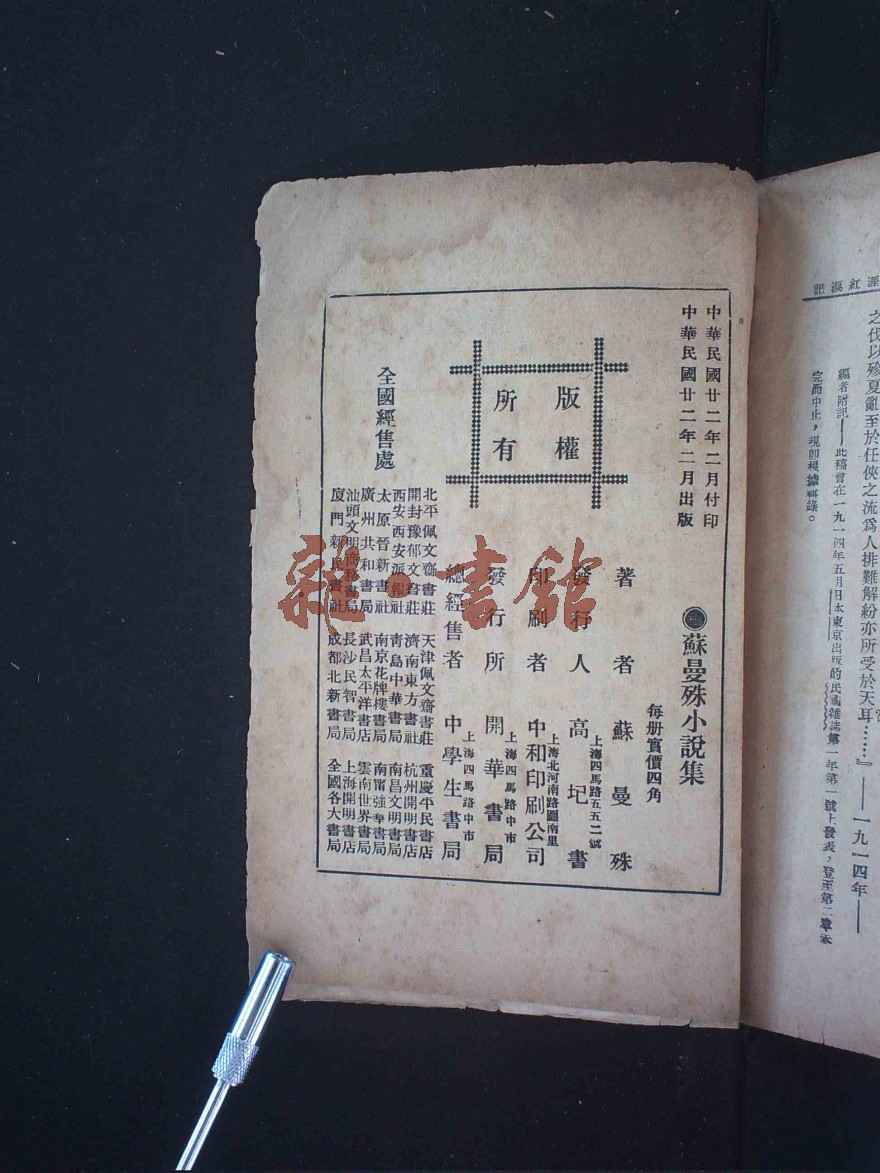 涯紅淚記
之伐以殄夏亂至於任俠之流爲人排難解紛亦所受於天耳……』——一九一四年——
編者附記——此稿曾在一九一四年五月日本東京出版的民國雜誌第一年第一號上發表，登至第二章未
完而中止，現卽根據
中華民國廿二年二月付印
中華民國廿二年二月出版
蘇曼殊小說集
每册實價四角
著者 蘇曼殊
上海四馬路五五二號
發行人 高圮書
上海北河南路圖南里
印刷者 中和印刷公司
上海四馬路中市
發行所 開華書局
上海四馬路中市
總經售者 中學生書局
版權
所有
全國經售處
北平佩文齋書莊 天津佩文齋書莊 重慶平民書店
開封豫郁文書莊 濟南東方書社 杭州開明書店
西安西安派報社 青島中華書局 南昌文明書局
太原晉新書社 南京花牌樓書局 南甯強華書局
廣州共和書局 武昌太平洋書店 雲南世界書局
汕頭文明商務書局 長沙民智書局 上海開明書店
廈門新民書社 成都北新書局 全國各大書局
雜·書館